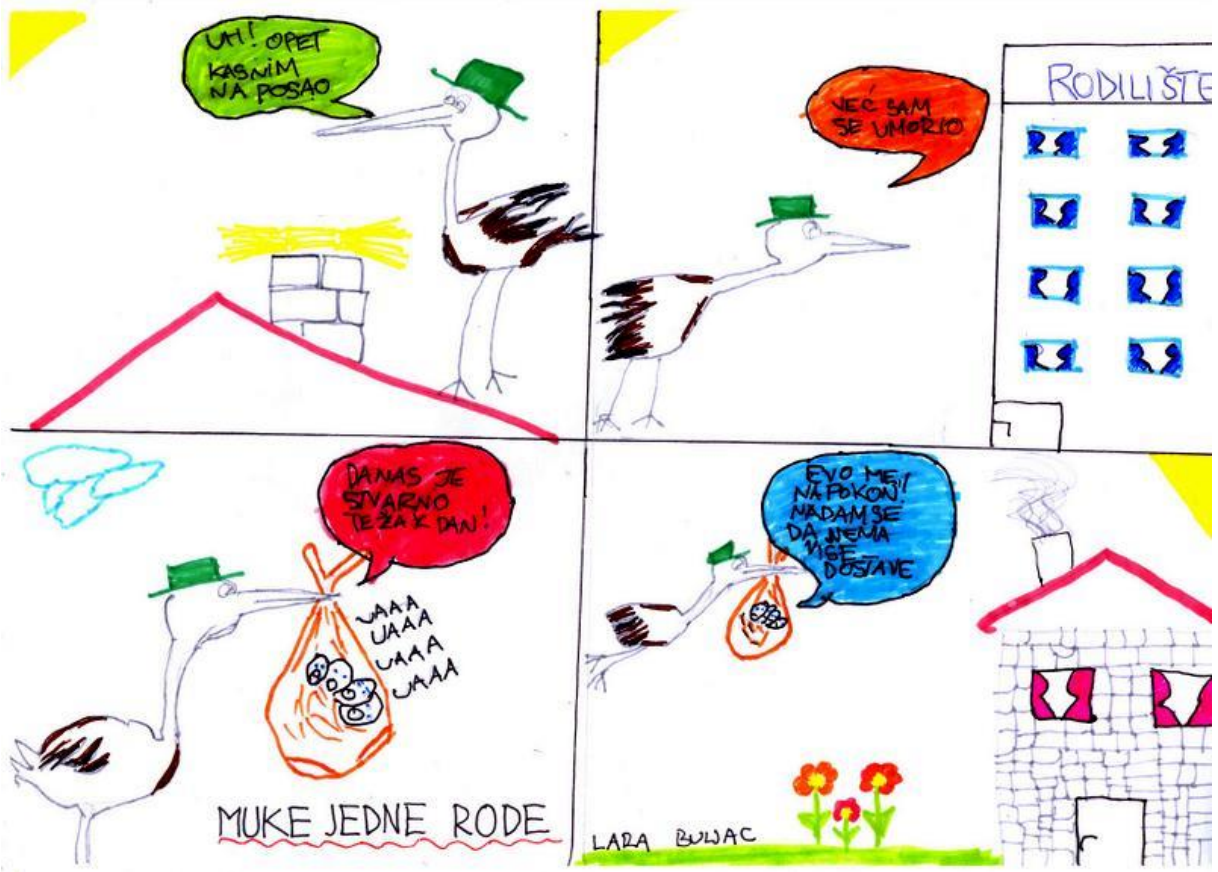 UH! OPET
KASNIM
NA POSAO
VEĆ SAM
SE UMORIO
RODILIŠTE
DANAS JE
STVARNO
TEŽAK DAN!
UAAA
UAAA
UAAA
UAAA
MUKE JEDNE RODE
EVO ME
NAPOKON!
NADAM SE
DA NEMA
VIŠE
DOSTAVE
LARA